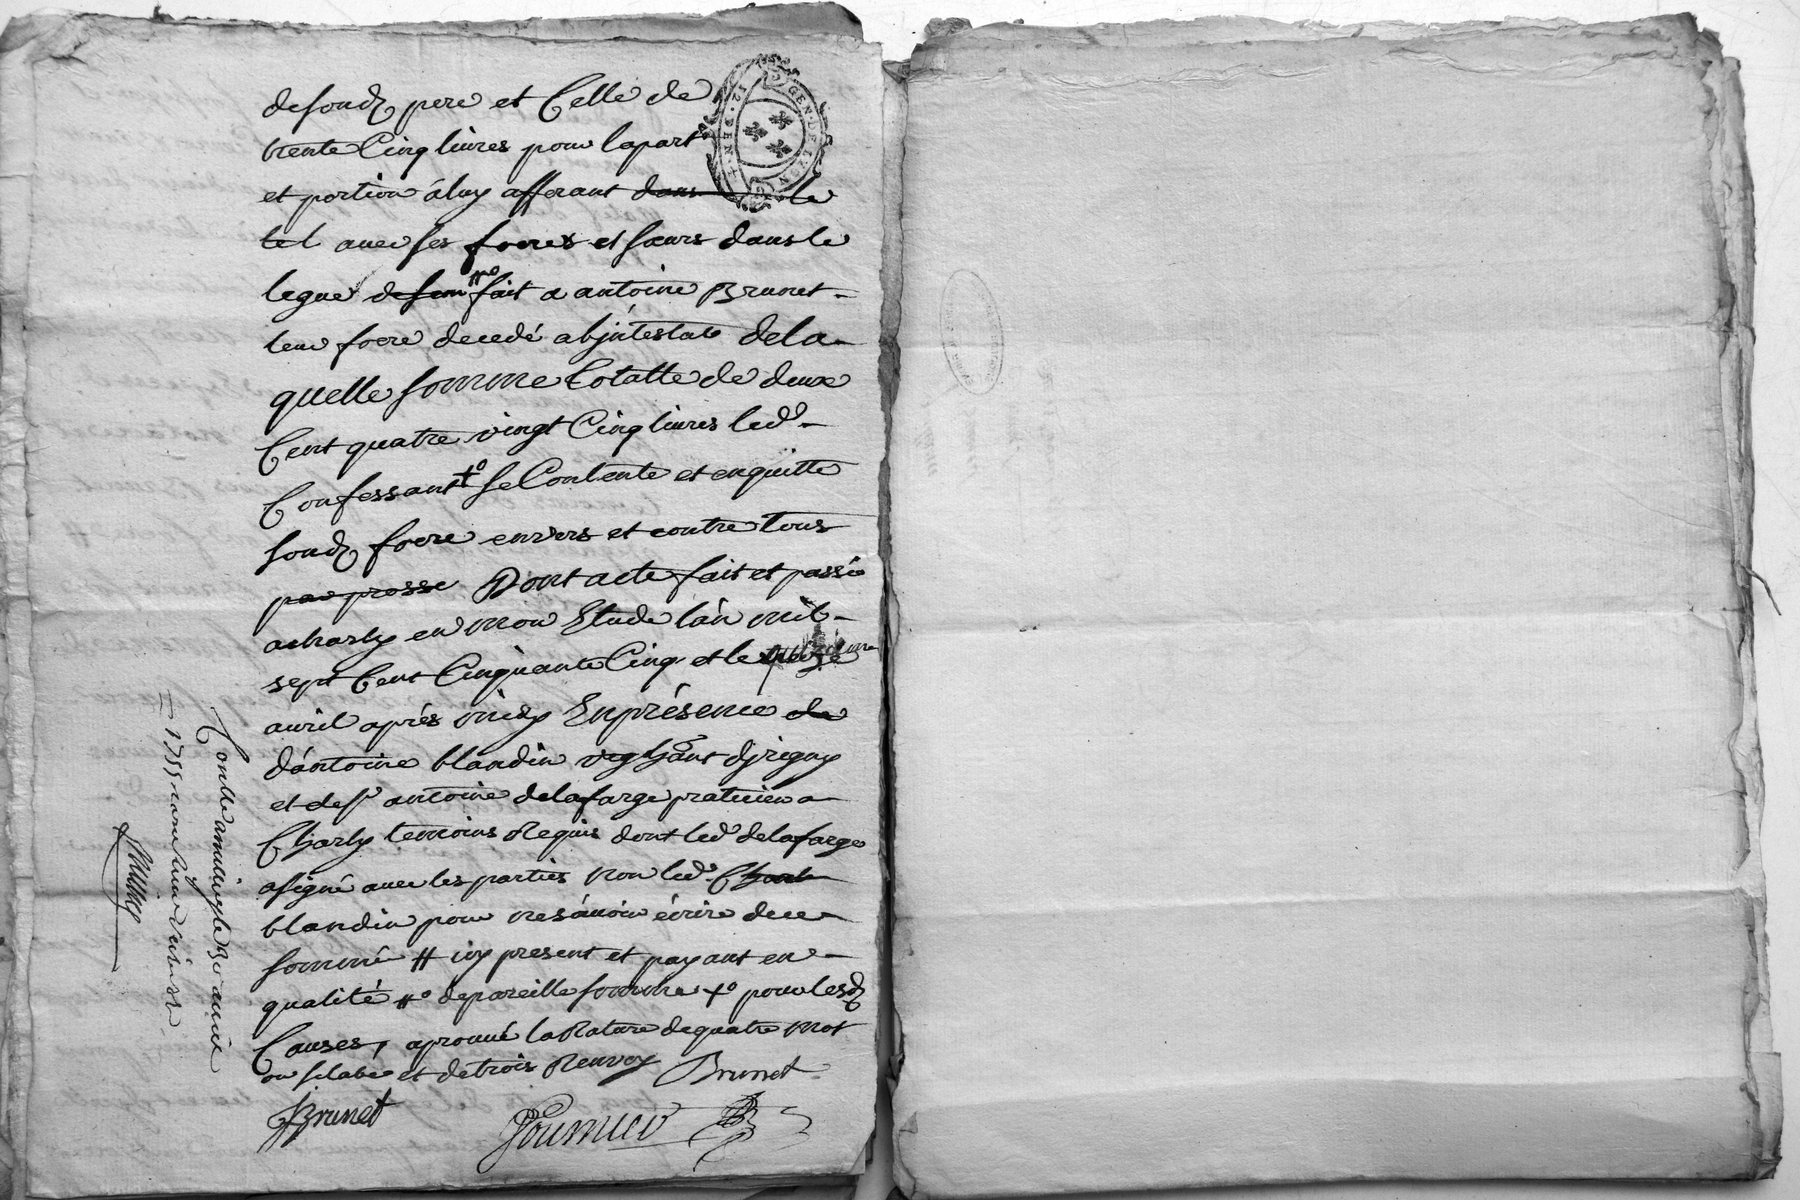 desond. pere et Celle de
trente Cinq livres pour lapart
et portion áluy afferant dans le
tel avec ses freres et sœurs dans le
legue de son #o fait a antoine Brunet
leur frere decedé abjntestat dela
quelle somme totalle de deux
Cent quatre vingt Cinq livres led.
Confessant +o se Contente et enquitte
sond. frere envers et contre tous
par presse Dont acte fait et passé
acharly en mon Etude l'án mil
sept Cent Cinquante Cinq et le
avril aprés midy En présence de
d'ántoine blandin vigñant djrigny
et de sr antoine delafarge praticien a
Charly temoins Requis dont led. delafarge
asigné avec les parties non led. Charle
blandin pour ne sávoir écrire de ce
sommé # icy present et payant en
qualité #o de pareille somme +o pour lesd.
Causes, aprouvé la Rature de quatre mot
ou silabe et de trois Renvoy Brunet
JBrunet Fournier
GEN·DE·LYON
12. DEN.